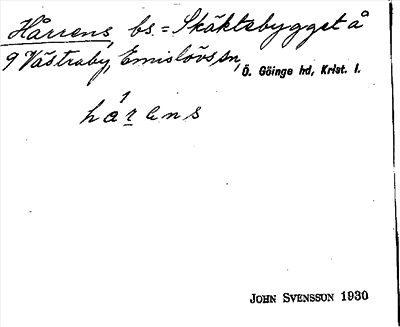 Hårrens, bs. = Skäktebygget å
9 Västraby, Emislövs sn,
Ö. Göinge hd, Krist. l.
hárens
JOHN SVENSSON 1930